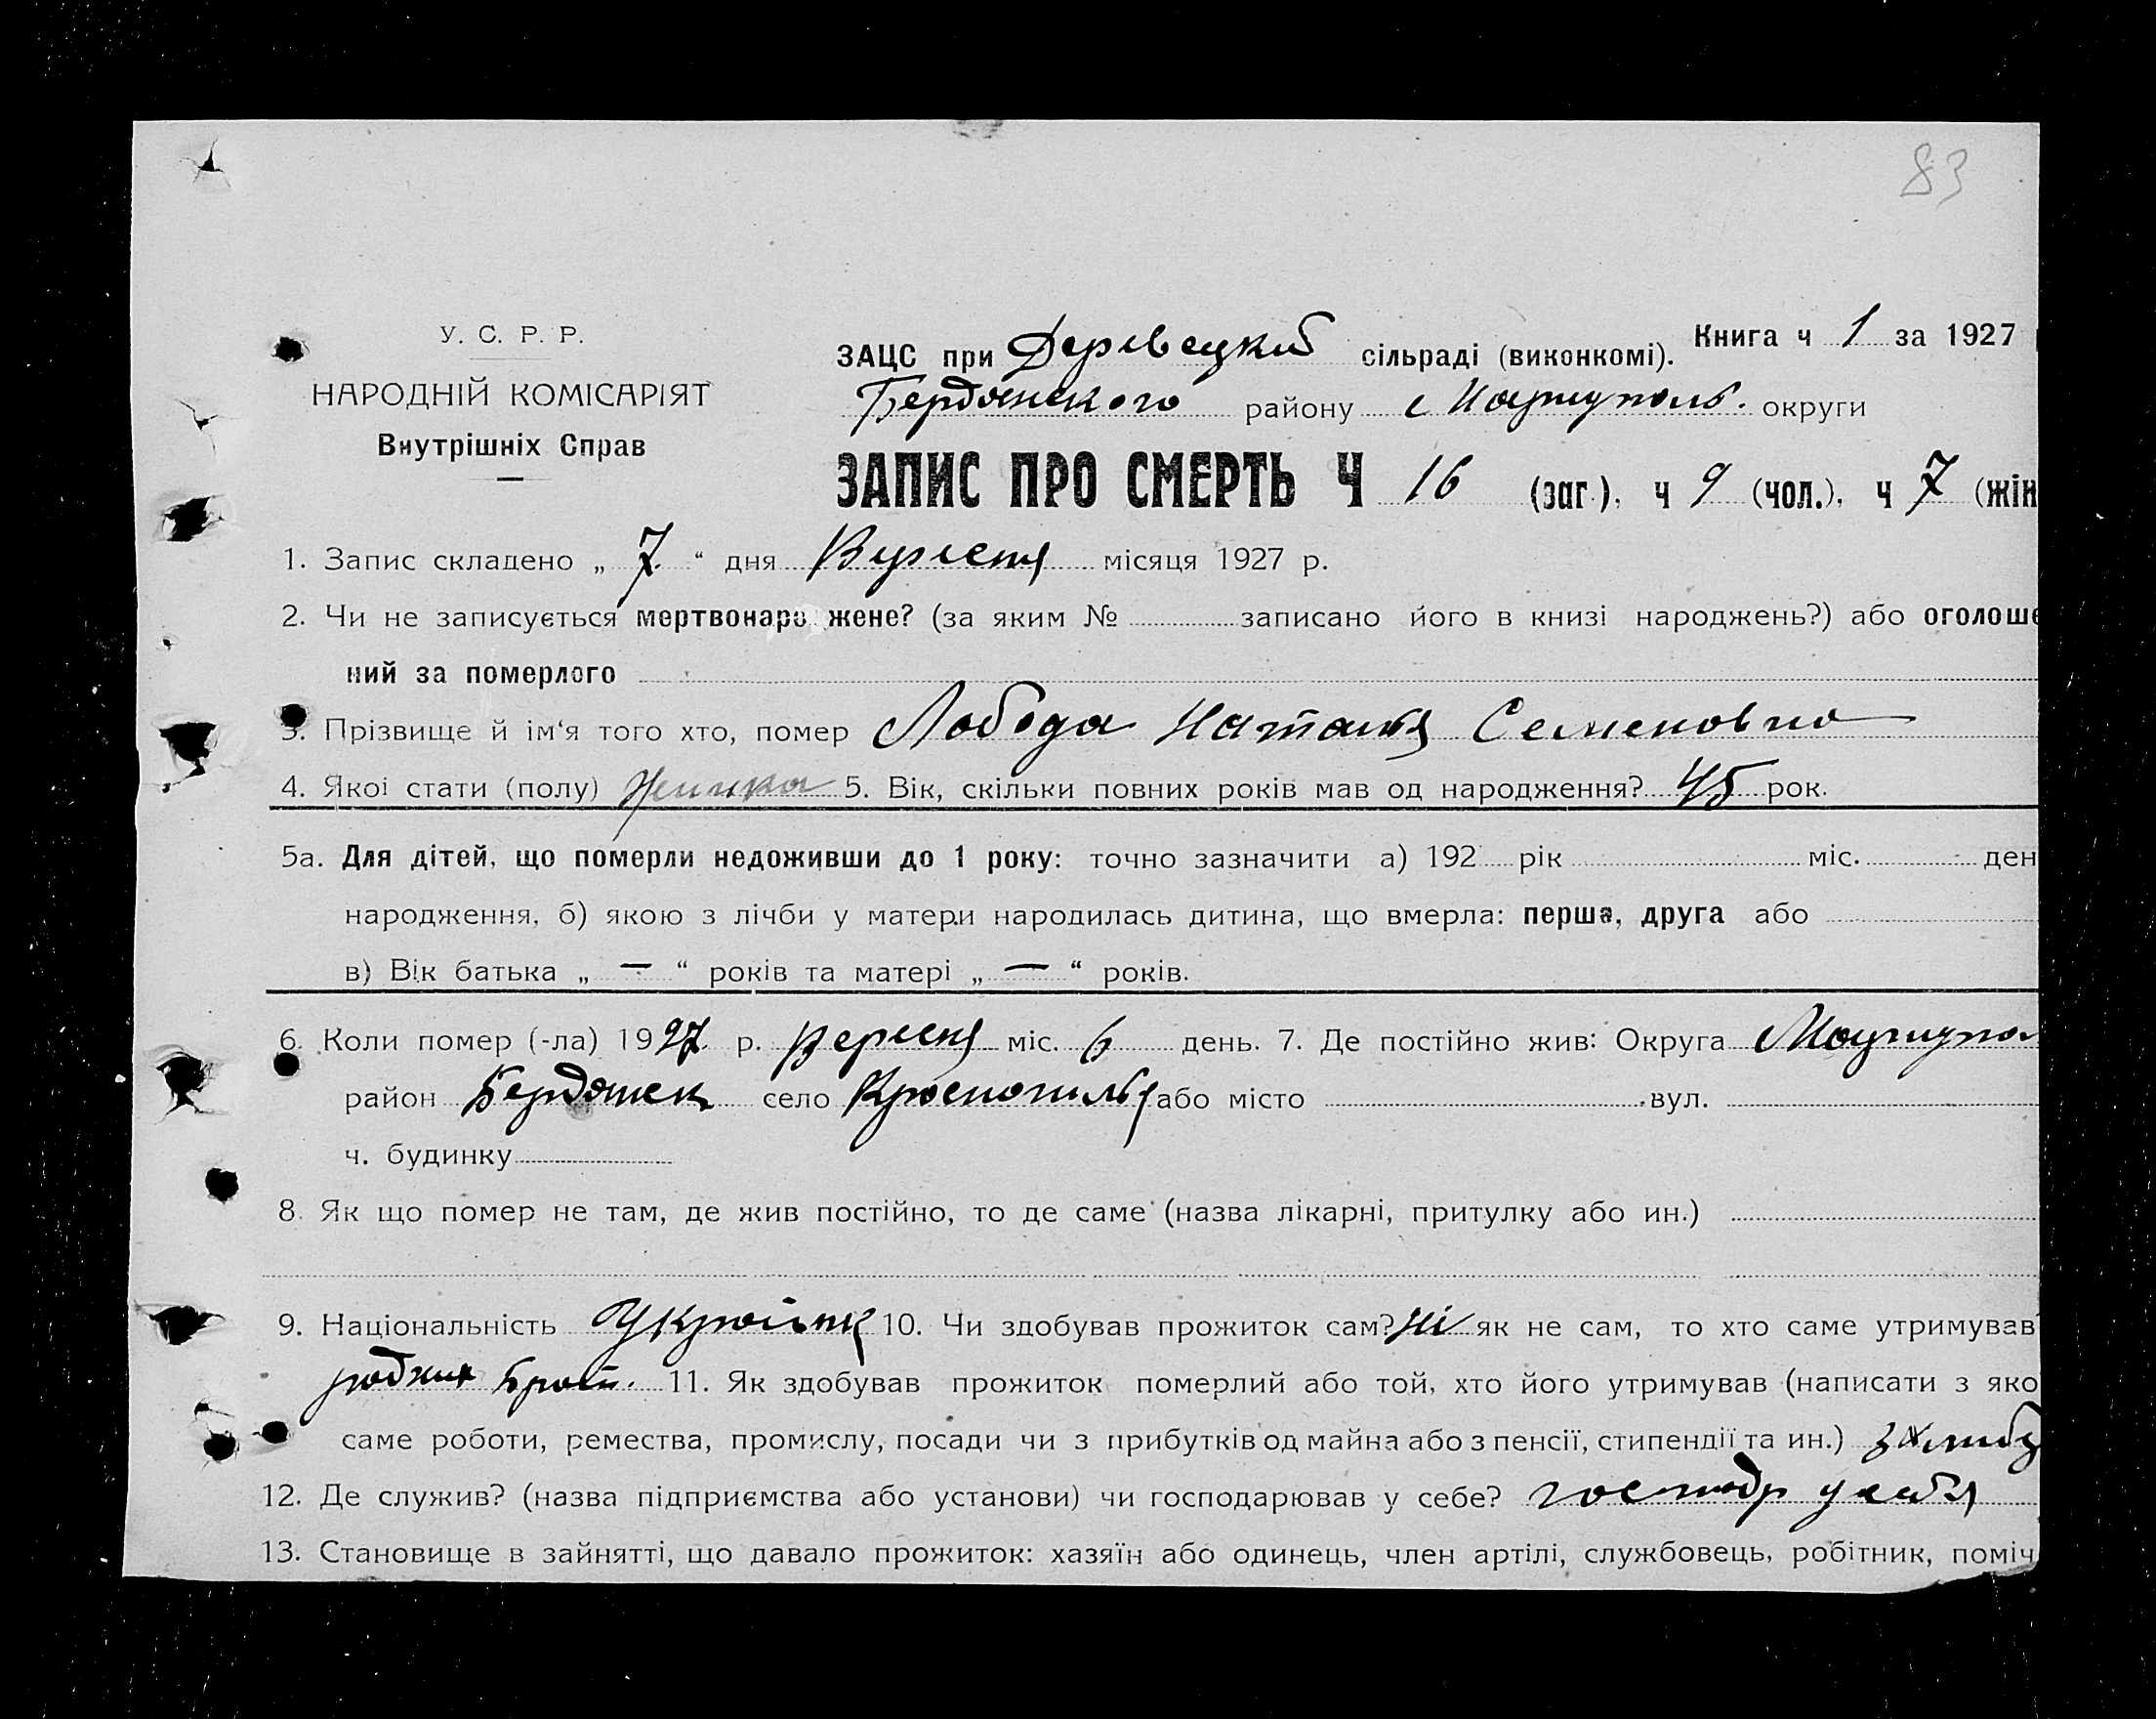 83
У. С. Р. Р.
НАРОДНІЙ КОМІСАРІЯТ
Внутрішніх Справ
ЗАЦС при сільраді (виконкомі). Книга ч 1 за 1927
Бердянского району округи
ЗАПИС ПРО СМЕРТЬ Ч 16 (заг.), ч 9 (чол.), ч 7 (жін
1. Запис складено „ 7 “ дня місяця 1927 р.
2. Чи не записується мертвонаро жене? (за яким № записано його в книзі народжень?) або оголоше
ний за померлого
3. Прізвище й ім‘я того хто, помер Лобода Наталя Семеновна
4. Якої стати (полу) жинка 5. Вік, скільки повних років мав од народження? 45 рок.
5а. Для дітей, що померли недоживши до 1 року: точно зазначити а) 192 рік міс. ден
народження, б) якою з лічби у матери народилась дитина, що вмерла: перша, друга або
в) Вік батька „ — “ років та матері „ — “ років.
6. Коли помер (-ла) 1927 р. вересня міс. 6 день. 7. Де постійно жив: Округа
район Бердянск село або місто вул.
ч. будинку
8. Як що помер не там, де жив постійно, то де саме (назва лікарні, притулку або ин.)
9. Національність 10. Чи здобував прожиток сам? Ні як не сам, то хто саме утримував
11. Як здобував прожиток померлий або той, хто його утримував (написати з яко
саме роботи, ремества, промислу, посади чи з прибутків од майна або з пенсії, стипендії та ин.)
12. Де служив? (назва підприємства або установи) чи господарював у себе? у себя
13. Становище в зайнятті, що давало прожиток: хазяїн або одинець, член артілі, службовець, робітник, поміч